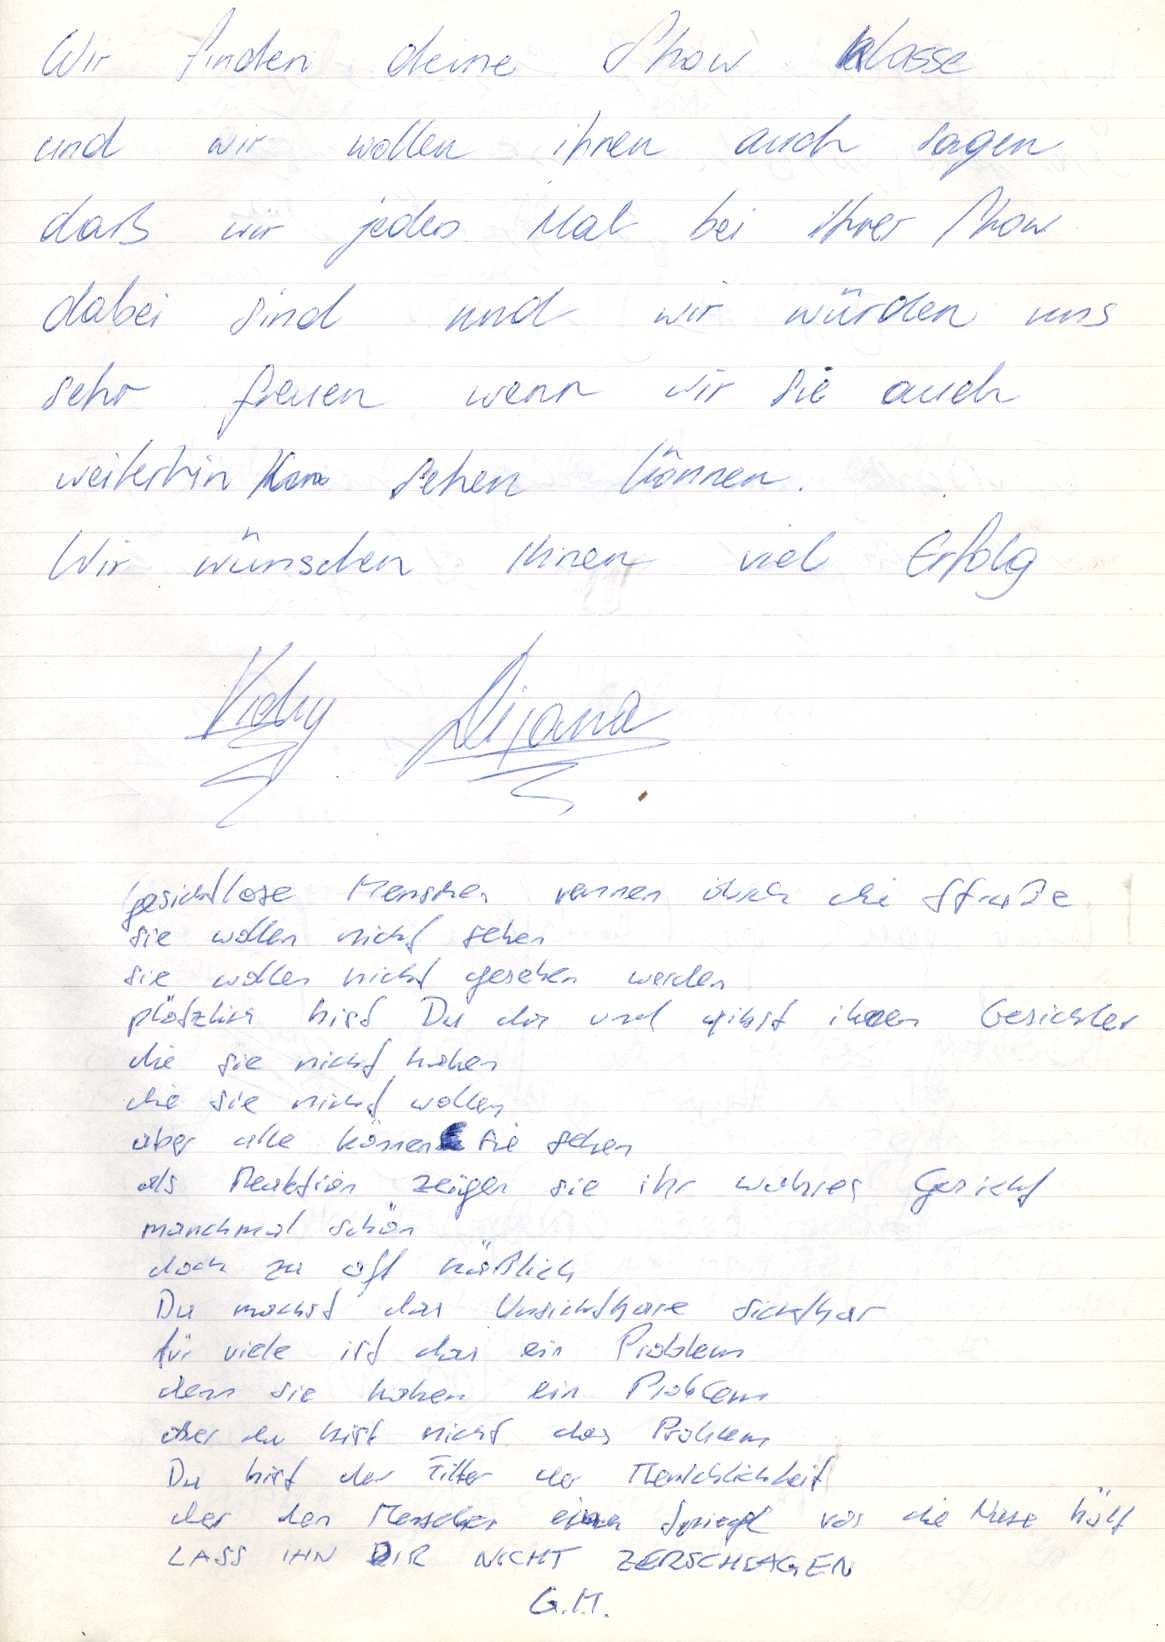 Wir finden deine Show klasse
und wir wollen ihnen auch sagen
daß wir jedes Mal bei Ihrer Show
dabei sind und wir würden uns
sehr freuen wenn wir Sie auch
weiterhin sehen können.
Wir wünschen Ihnen viel Erfolg
Vicky Dijana
gesichtlose Menschen rennen durch die Straße
sie wollen nicht sehen
sie wollen nicht gesehen werden
plötzlich bist Du da und gibst ihnen Gesichter
die sie nicht haben
die sie nicht wollen
aber alle können sie sehen
als Reaktion zeigen sie ihr wahres Gesicht
manchmal schön
doch zu oft häßlich
Du machst das Unsichtbare sichtbar
für viele ist das ein Problem
denn sie haben ein Problem
aber du bist nicht das Problem
Du bist der Filter der Menschlichkeit
der den Menschen einen Spiegel vor die Nase hält
LASS IHN DIR NICHT ZERSCHLAGEN
G.M.